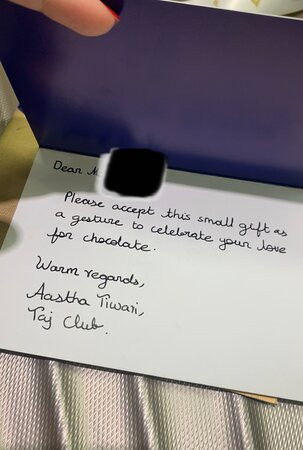 Dear M
Please accept this small gift as
a gesture to celebrate your love
for chocolate.
Warm regards,
Aastha Tiwari,
Taj Club.